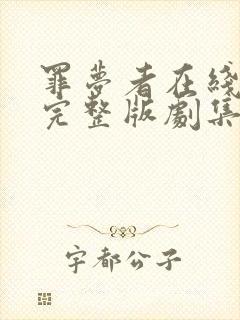 罪夢者在綫
完整版劇集
宇都公子